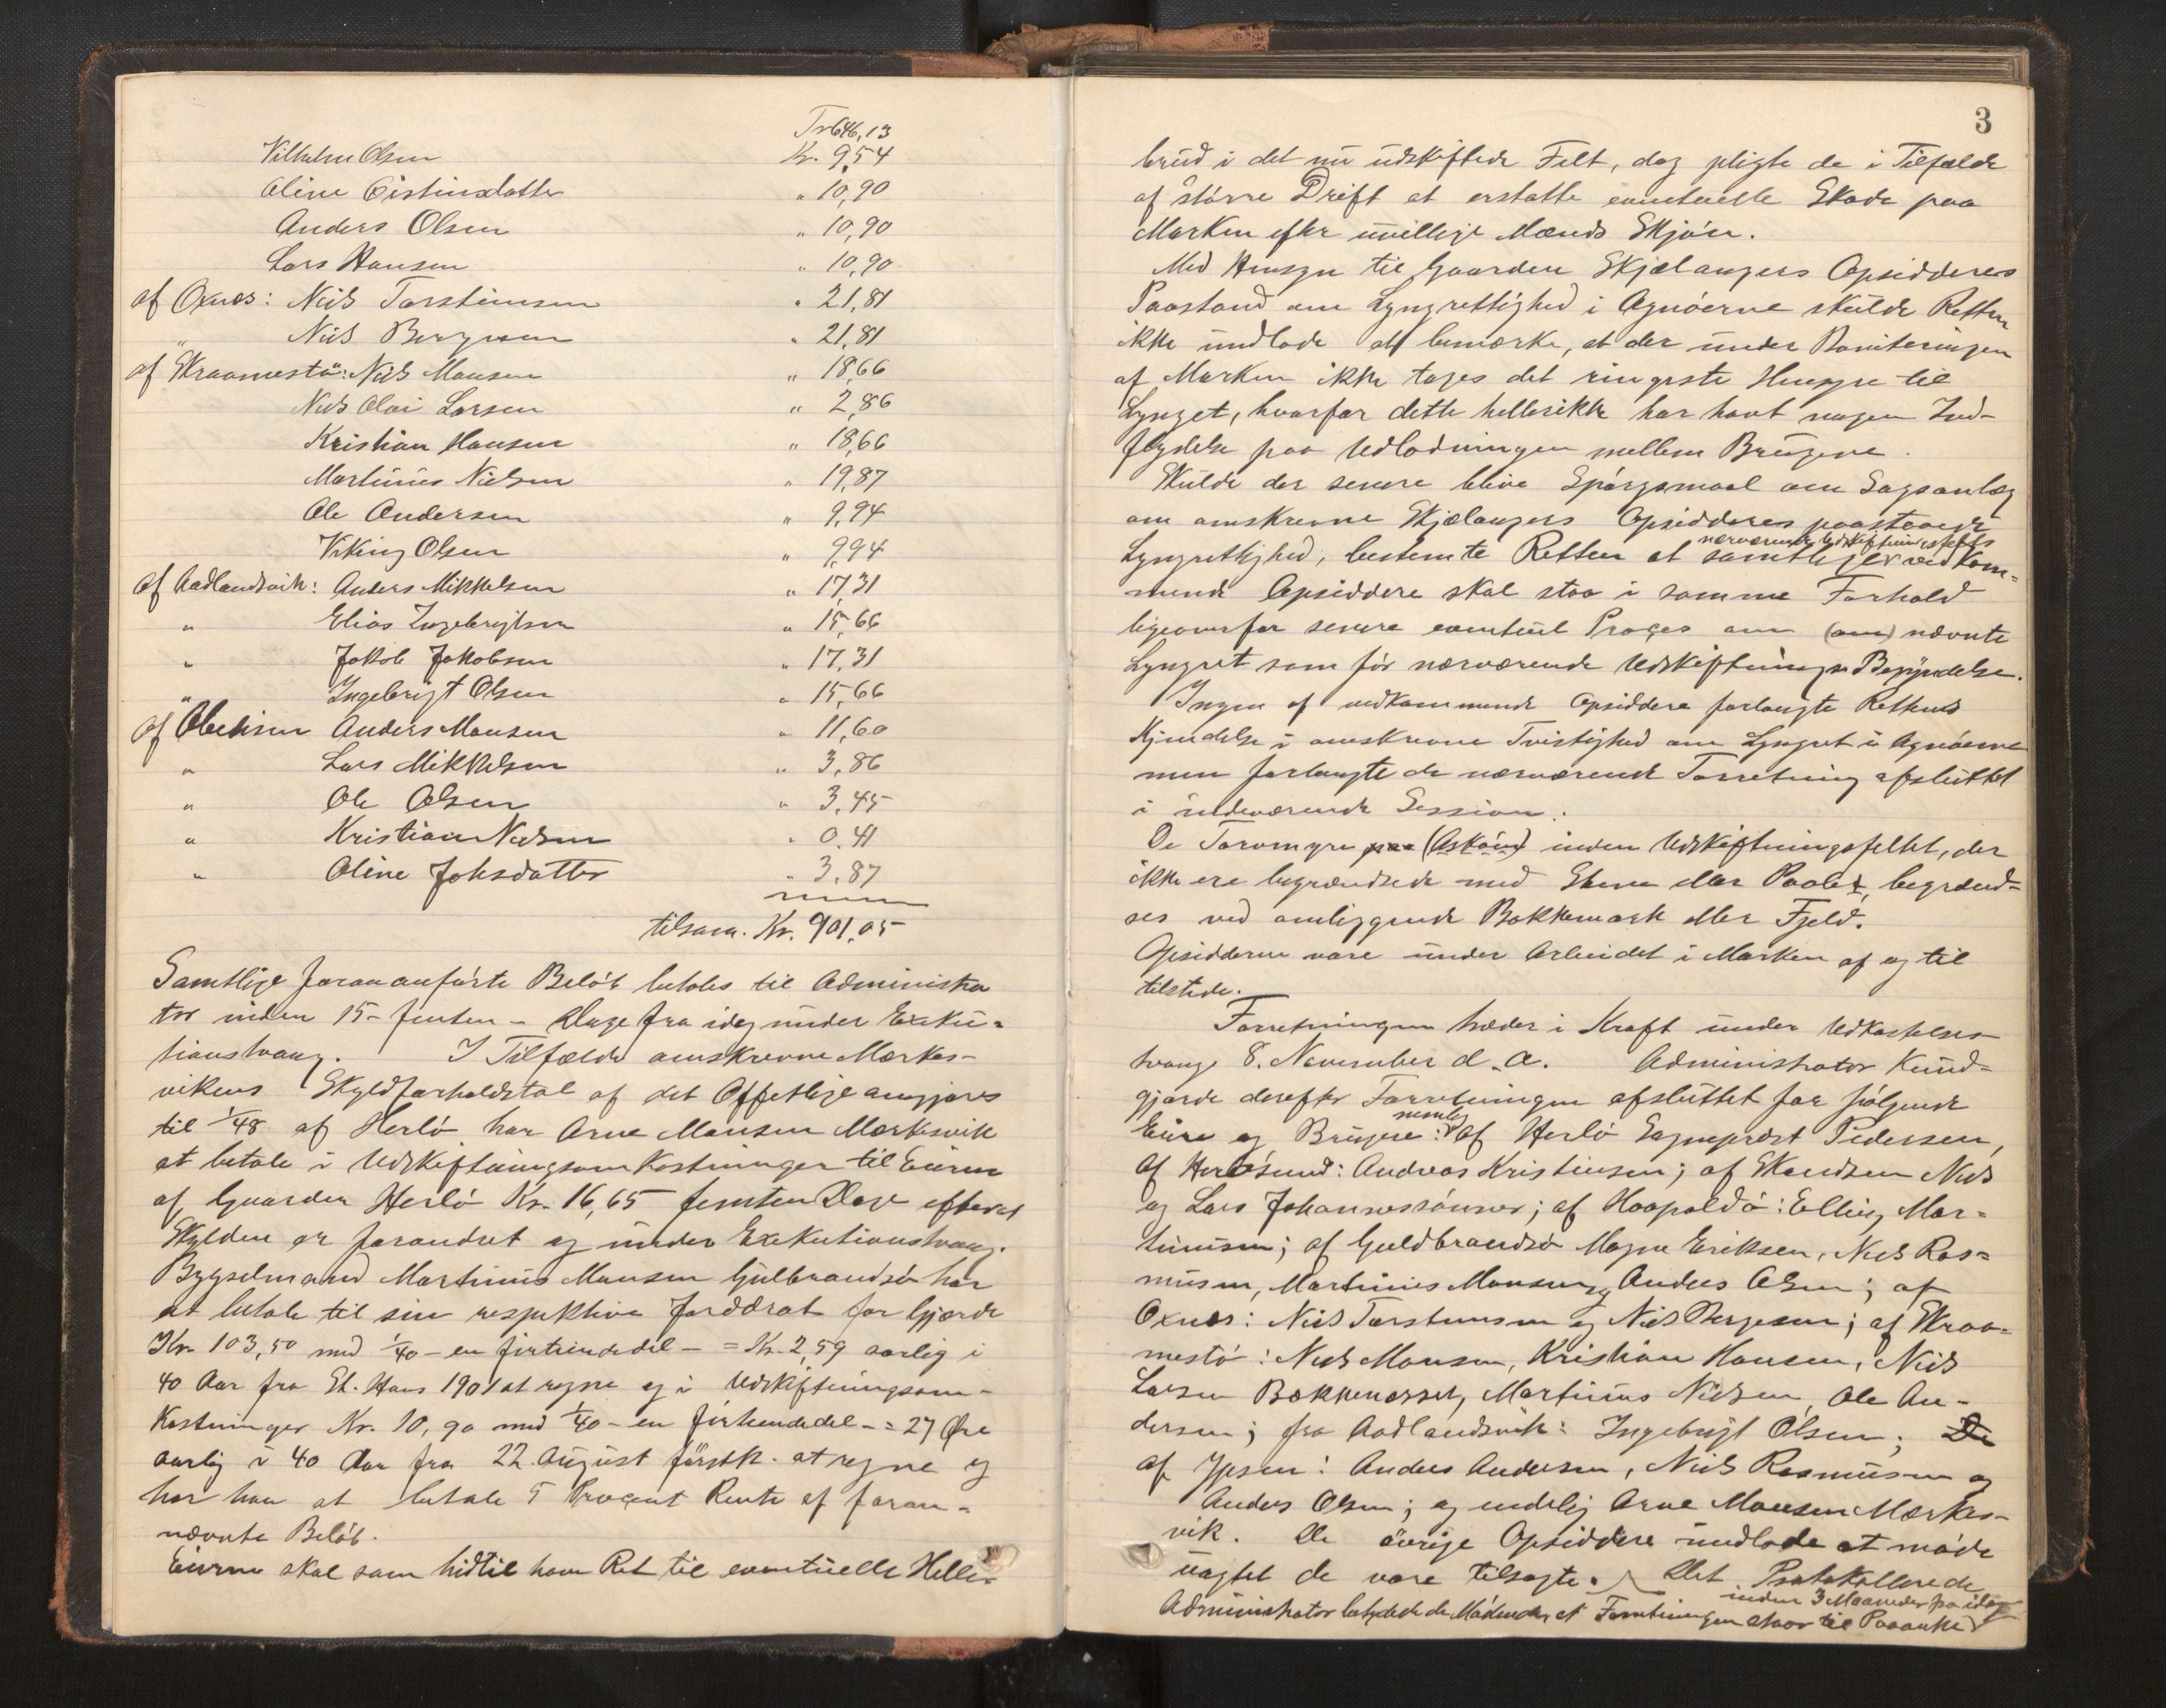 Tr 646,13
Vilhelm Olsen Kr. 9,54
Oline Öistinsdatter " 10,90
Anders Olsen " 10,90
Lars Hansen " 10,90
af Oxnes: Nils Torsteinsen " 21,81
" Nils Bergesen " 21,81
af Skraamestö: Nils Monsen " 18,66
Nils Olai Larsen " 2,86
Kristian Hansen " 18,66
Martinus Nielsen " 19,87
Ole Andersen " 9,94
Viking Olsen " 9,94
af Aadlandsvik: Anders Mikkelsen " 17,31
" Elias Ingebrigtsen " 15,66
" Jakob Jakobsen " 17,31
" Ingebrigt Olsen " 15,66
af Anders Monsen " 11,60
" Lars Mikkelsen " 3,86
" Ole Olsen " 3,45
" Kristian Nielsen " 0,41
" Oline Johsdatter " 3,87
tilsam. Kr. 901,05
Samtlige forananförte Belöb betales til Administra
tor inden 15 - femten - Dage fra idag under Exeku-
tionstvang. I Tilfælde omskrevne Mærkes-
vikens Skyldforholdstal af det Offetlige omgjøres
til 1/48 af Herlö har Arne Monsen Mærkesvik
at betale i Udskiftningsomkostninger til Eierne
af Gaarden Herlö Kr. 16,65 femten Dage efterat
Skylden er forandret og under Exekutionstvang.
Bygselmand Martinus Monsen Gulbrandsö har
at betale til sin respektive Jorddrot for Gjærde
Kr. 103,50 med 1/40 - en firtiendedel - = Kr. 2,59 aarlig i
40 Aar fra St. Hans 1901 at regne og i Udskiftningsom-
kostninger Kr. 10,90 med 1/40 - en firtiendedel - = 27 Øre
aarlig i 40 Aar fra 22. August førstk. at regne og
har han at betale 5 Procent Rente af foran-
nævnte Belöb.
Eierne skal som hidtil have Ret til eventuelle Helle-
3
brud i det nu udskiftede Felt, dog pligte de i Tilfælde
af større Drift at erstatte eventuelle Skade paa
Marken efter uvillige Mænds Skjön.
Med Hensyn til Gaarden Skjælangers Opsidderes
Paastand om Lyngrettighed i Agnöerne skulde Retten
ikke undlade at bemærke, at der under Boniteringen
af Marken ikke toges det ringeste Hensyn til
Lynget, hvorfor dette hellerikke har havt nogen Ind-
flydelse paa Udlodningen mellem Brugene.
Skulde der senere blive Spörgsmaal om Sagsanlæg
om omskrevne Skjælangers Opsidderes paastaaede
nærværende Udskiftningsfelts
Lyngrettighed, bestemte Retten at samtlige vedkom-
mende Opsiddere skal staa i samme Forhold
ligeoverfor senere eventuel Proces om (om) nævnte
Lyngret som för nærværende Udskiftnings Begyndelse.
Ingen af vedkommende Opsiddere forlangte Rettens
Kjendelse i omskrevne Tvistighed om Lyngret i Agnöerne
men forlangte de nærværende Forretning afsluttet
i indeværende Session.
De Torvmyre paa (Asköen) inden Udskiftningsfeltet, der
ikke ere begrændsede med Stene eller Pæle, begrænd-
ses ved omliggende Bakkemark eller Fjeld.
Opsidderne vare under Arbeidet i Marken af og til
tilstede.
Forretningen træder i Kraft under Udkastelses-
tvang 8. November d. A. Administrator kund-
gjorde derefter Forretningen afsluttet for fölgende
nemlig
Eiere og Brugere: af Herlö Sogneprest Pedersen,
af Herlösund: Andreas Kristensen; af Skandsen Nils
og Lars Johannessönner; af Haapoldö: Elling Mar-
tinusen; af Guldbrandsö Mogne Eriksen, Nils Ras-
musen, Martinus Monsen og Anders Olsen; af
Oxnes: Nils Torsteinsen og Nils Bergesen; af Skraa-
mestö: Nils Monsen, Kristian Hansen, Nils
Larsen Bakkenesset, Martinus Nielsen, Ole An-
dersen; fra Aadlandsvik: Ingebrigt Olsen; De
af Ypsen: Anders Andersen, Nils Rasmusen og
Anders Olsen; og endelig Arne Monsen Mærkes-
vik. De övrige Opsiddere undlode at möde
uagtet de vare tilsagte. Det Protokollerede
inden 3 Maaneder fra idag
Administrator betydede de Mödende, at Forretningen staar til Paaanke